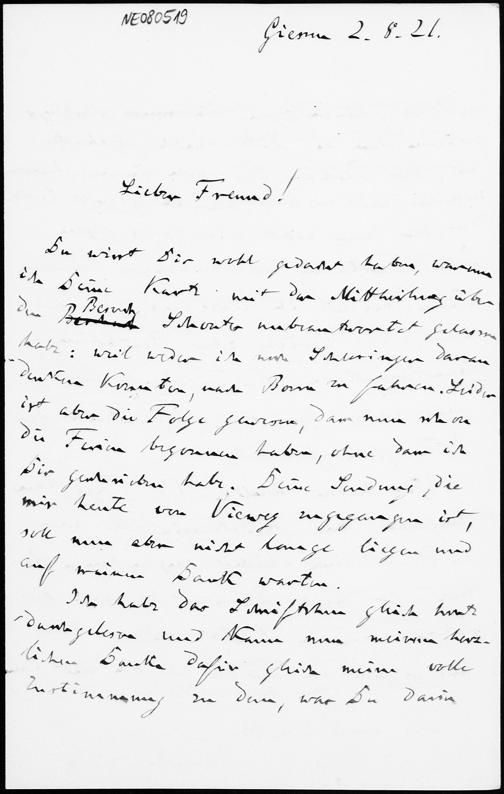 NE080519
Giessen 2.8.21.
Lieber Freund!
Du wirst Dir wohl gedacht haben, warum
ich Deine Karte mit der Mittheilung über
den Besuch Schouten unbeantwortet gelassen
habe: weil weder ich noch Schlesinger daran
denken konnten, nach Bonn zu fahren. Leider
ist aber die Folge gewesen, dass nun schon
die Ferien begonnen haben, ohne dass ich
Dir geschrieben habe. Deine Sendung, die
mir heute von Vieweg zugegangen ist,
soll nun aber nicht lange liegen und
auf meinen Dank warten.
Ich habe das Schriftchen gleich heute
durchgelesen und kann nun meinem herz-
lichen Danke dafür gleich meine volle
Zustimmung zu dem, was Du darin